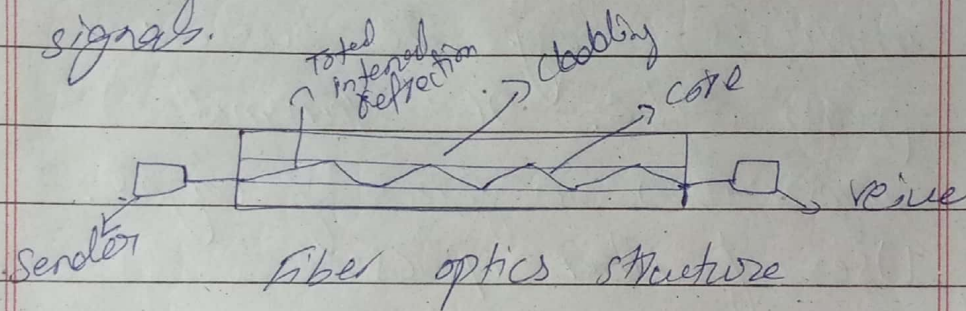 signals.
Toted
internal
reflection
cladding
core
sender
reive
Fiber optics structure